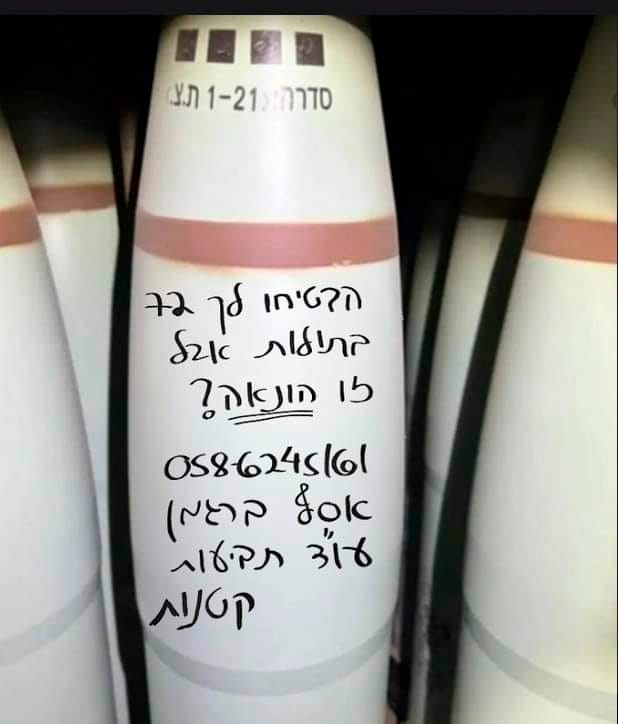 סדרה: 1-21 ת.צ.
הבטיחו לך 72
בתולות אבל
זו הונאה?
0586245161
אסף ברגמן
עו"ד תביעות
קטנות